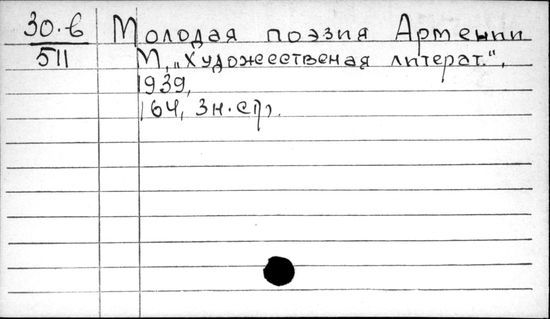 30.в Молодая поэзия Армении
511 М, „Художественая литерат.",
1939,
164, 3н.стр.